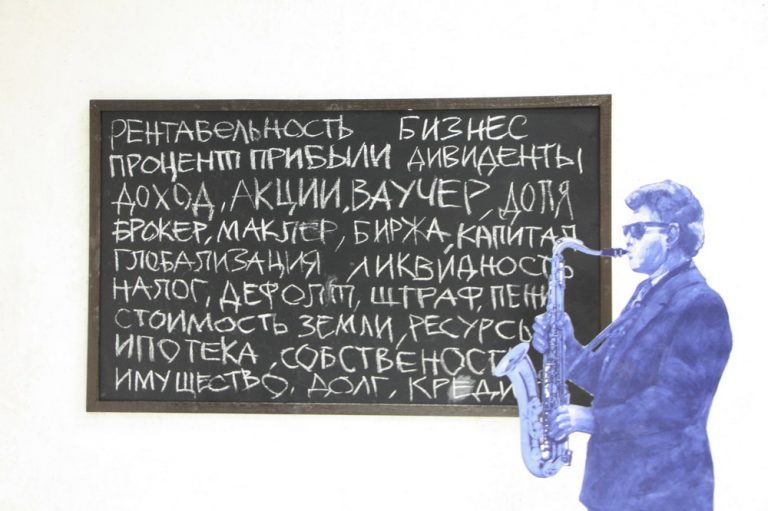 РЕНТАБЕЛЬНОСТЬ БИЗНЕС
ПРОЦЕНТ ПРИБЫЛИ ДИВИДЕНТЫ
ДОХОД, АКЦИИ, ВАУЧЕР, ДОЛЯ
БРОКЕР, МАКЛЕР, БИРЖА, КАПИТАЛ
ГЛОБАЛИЗАЦИЯ ЛИКВИДНОСТЬ
НАЛОГ, ДЕФОЛТ, ШТРАФ, ПЕНИ
СТОИМОСТЬ ЗЕМЛИ, РЕСУРСЫ
ИПОТЕКА, СОБСТВЕНОСТ
ИМУЩЕСТВО, ДОЛГ, КРЕДИ